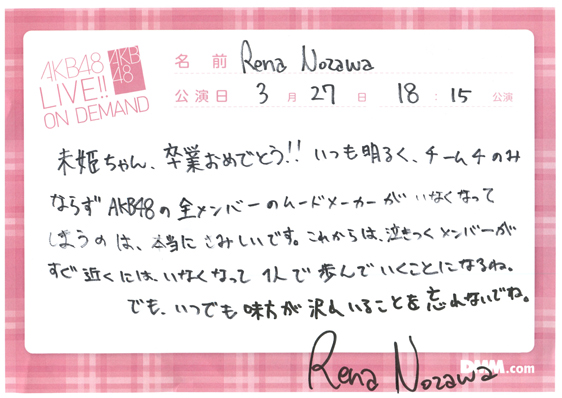 AKB48
LIVE!!
ON DEMAND
AKB
48
名前 Rena Nozawa
公演日 3月27日 18:15公演
未姫ちゃん、卒業おめでとう!! いつも明るく、チーム4のみ
ならずAKB48の全メンバーのムードメーカーがいなくなって
しまうのは、本当にさみしいです。これからは、泣きつくメンバーが
すぐ近くには、いなくなって1人で歩んでいくことになるね。
でも、いつでも味方が沢山いることを忘れないでね。
Rena Nozawa
DMM.com